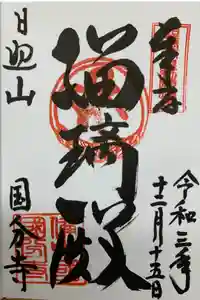 奉拝
令和三年
十二月十五日
瑠璃殿
日照山
国分寺